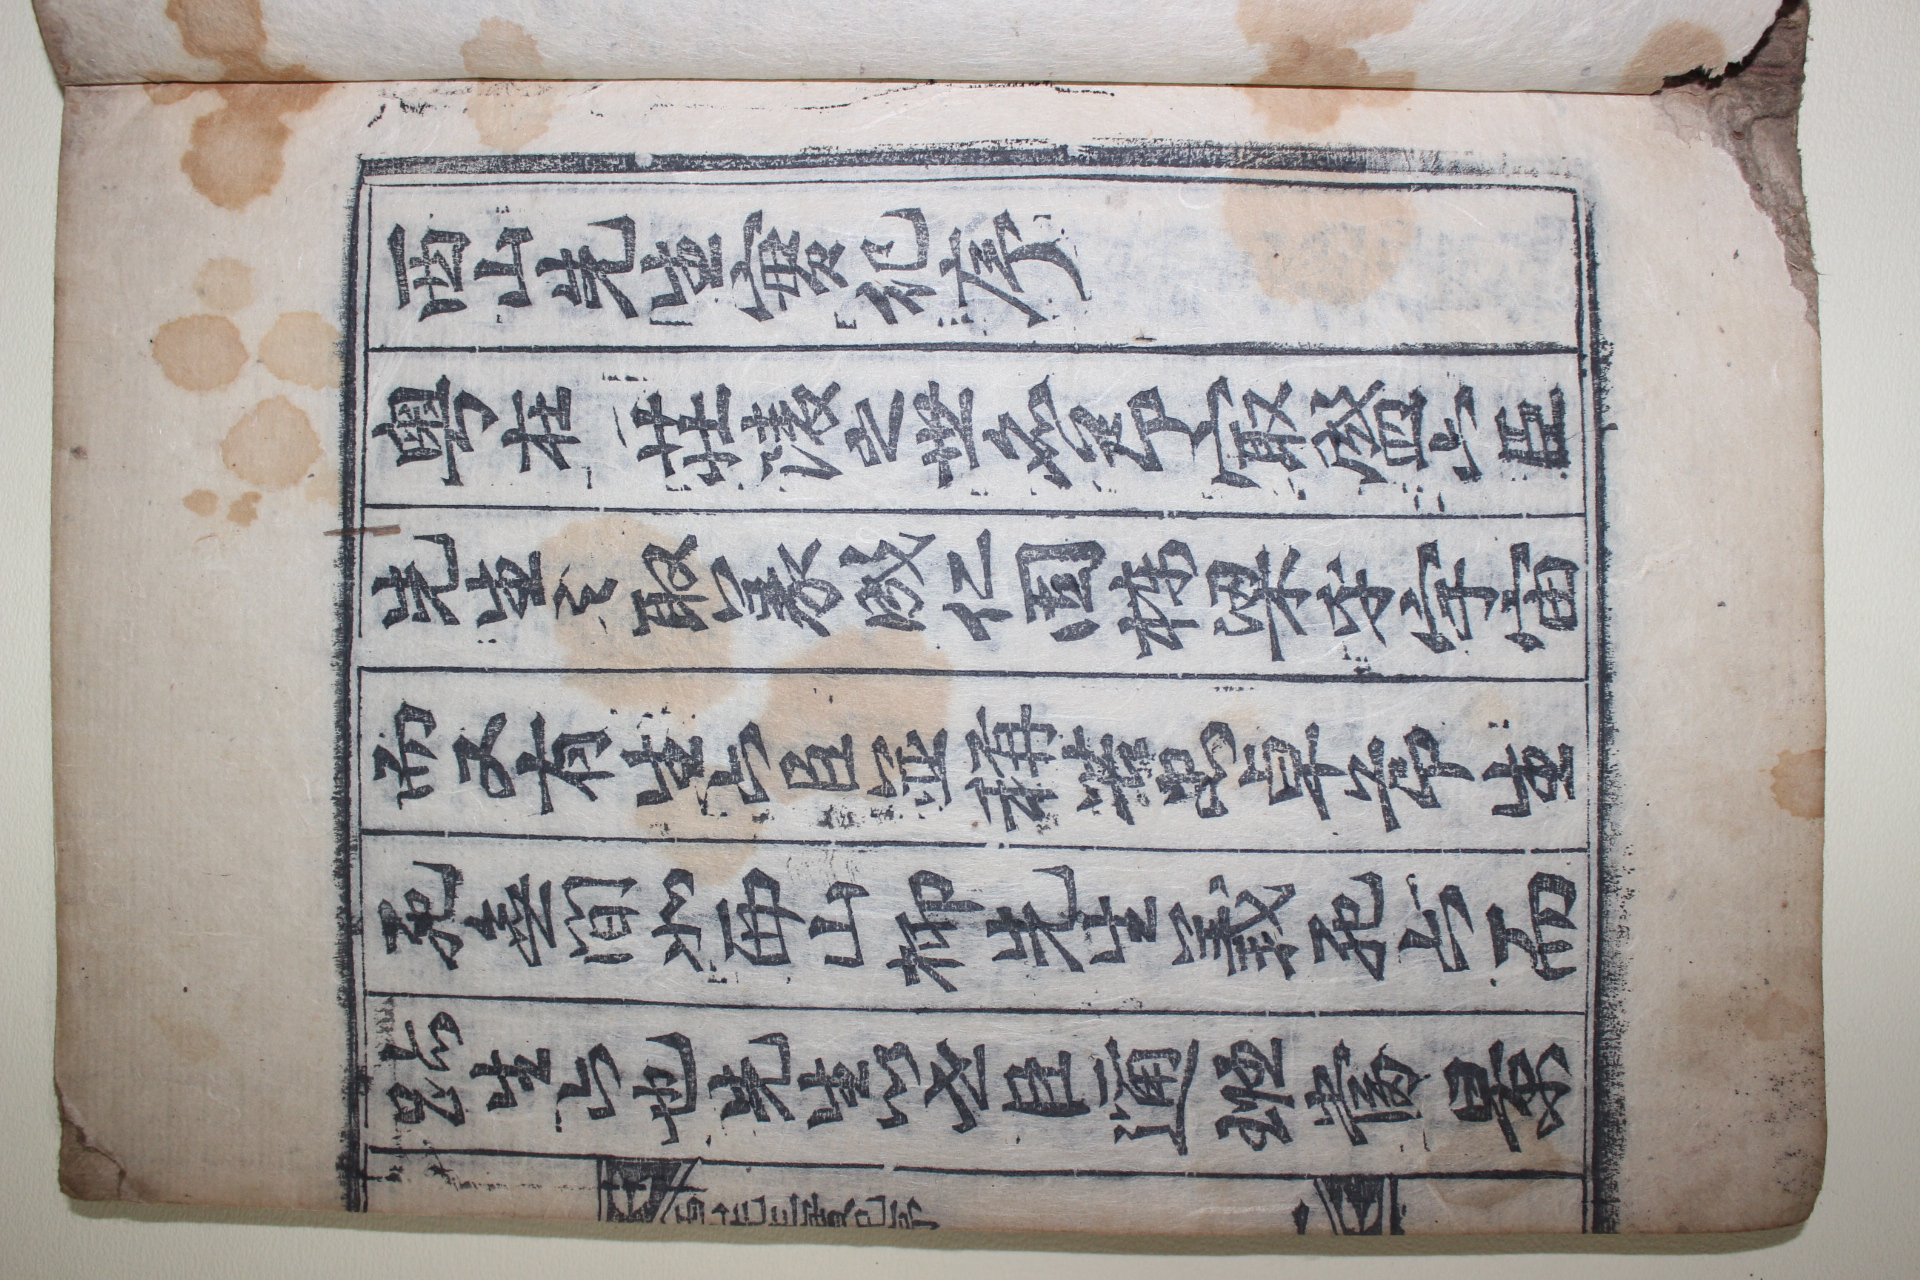 西山先生實紀序
粤在 莊陵之世名節㝡盛六臣
先生之取義成仁固棟梁乎宇宙
而又有生六臣並稱苦忠卓節生
死無間如西山柳先生義死六而
跡生六也先生以世臣邇班嘗景